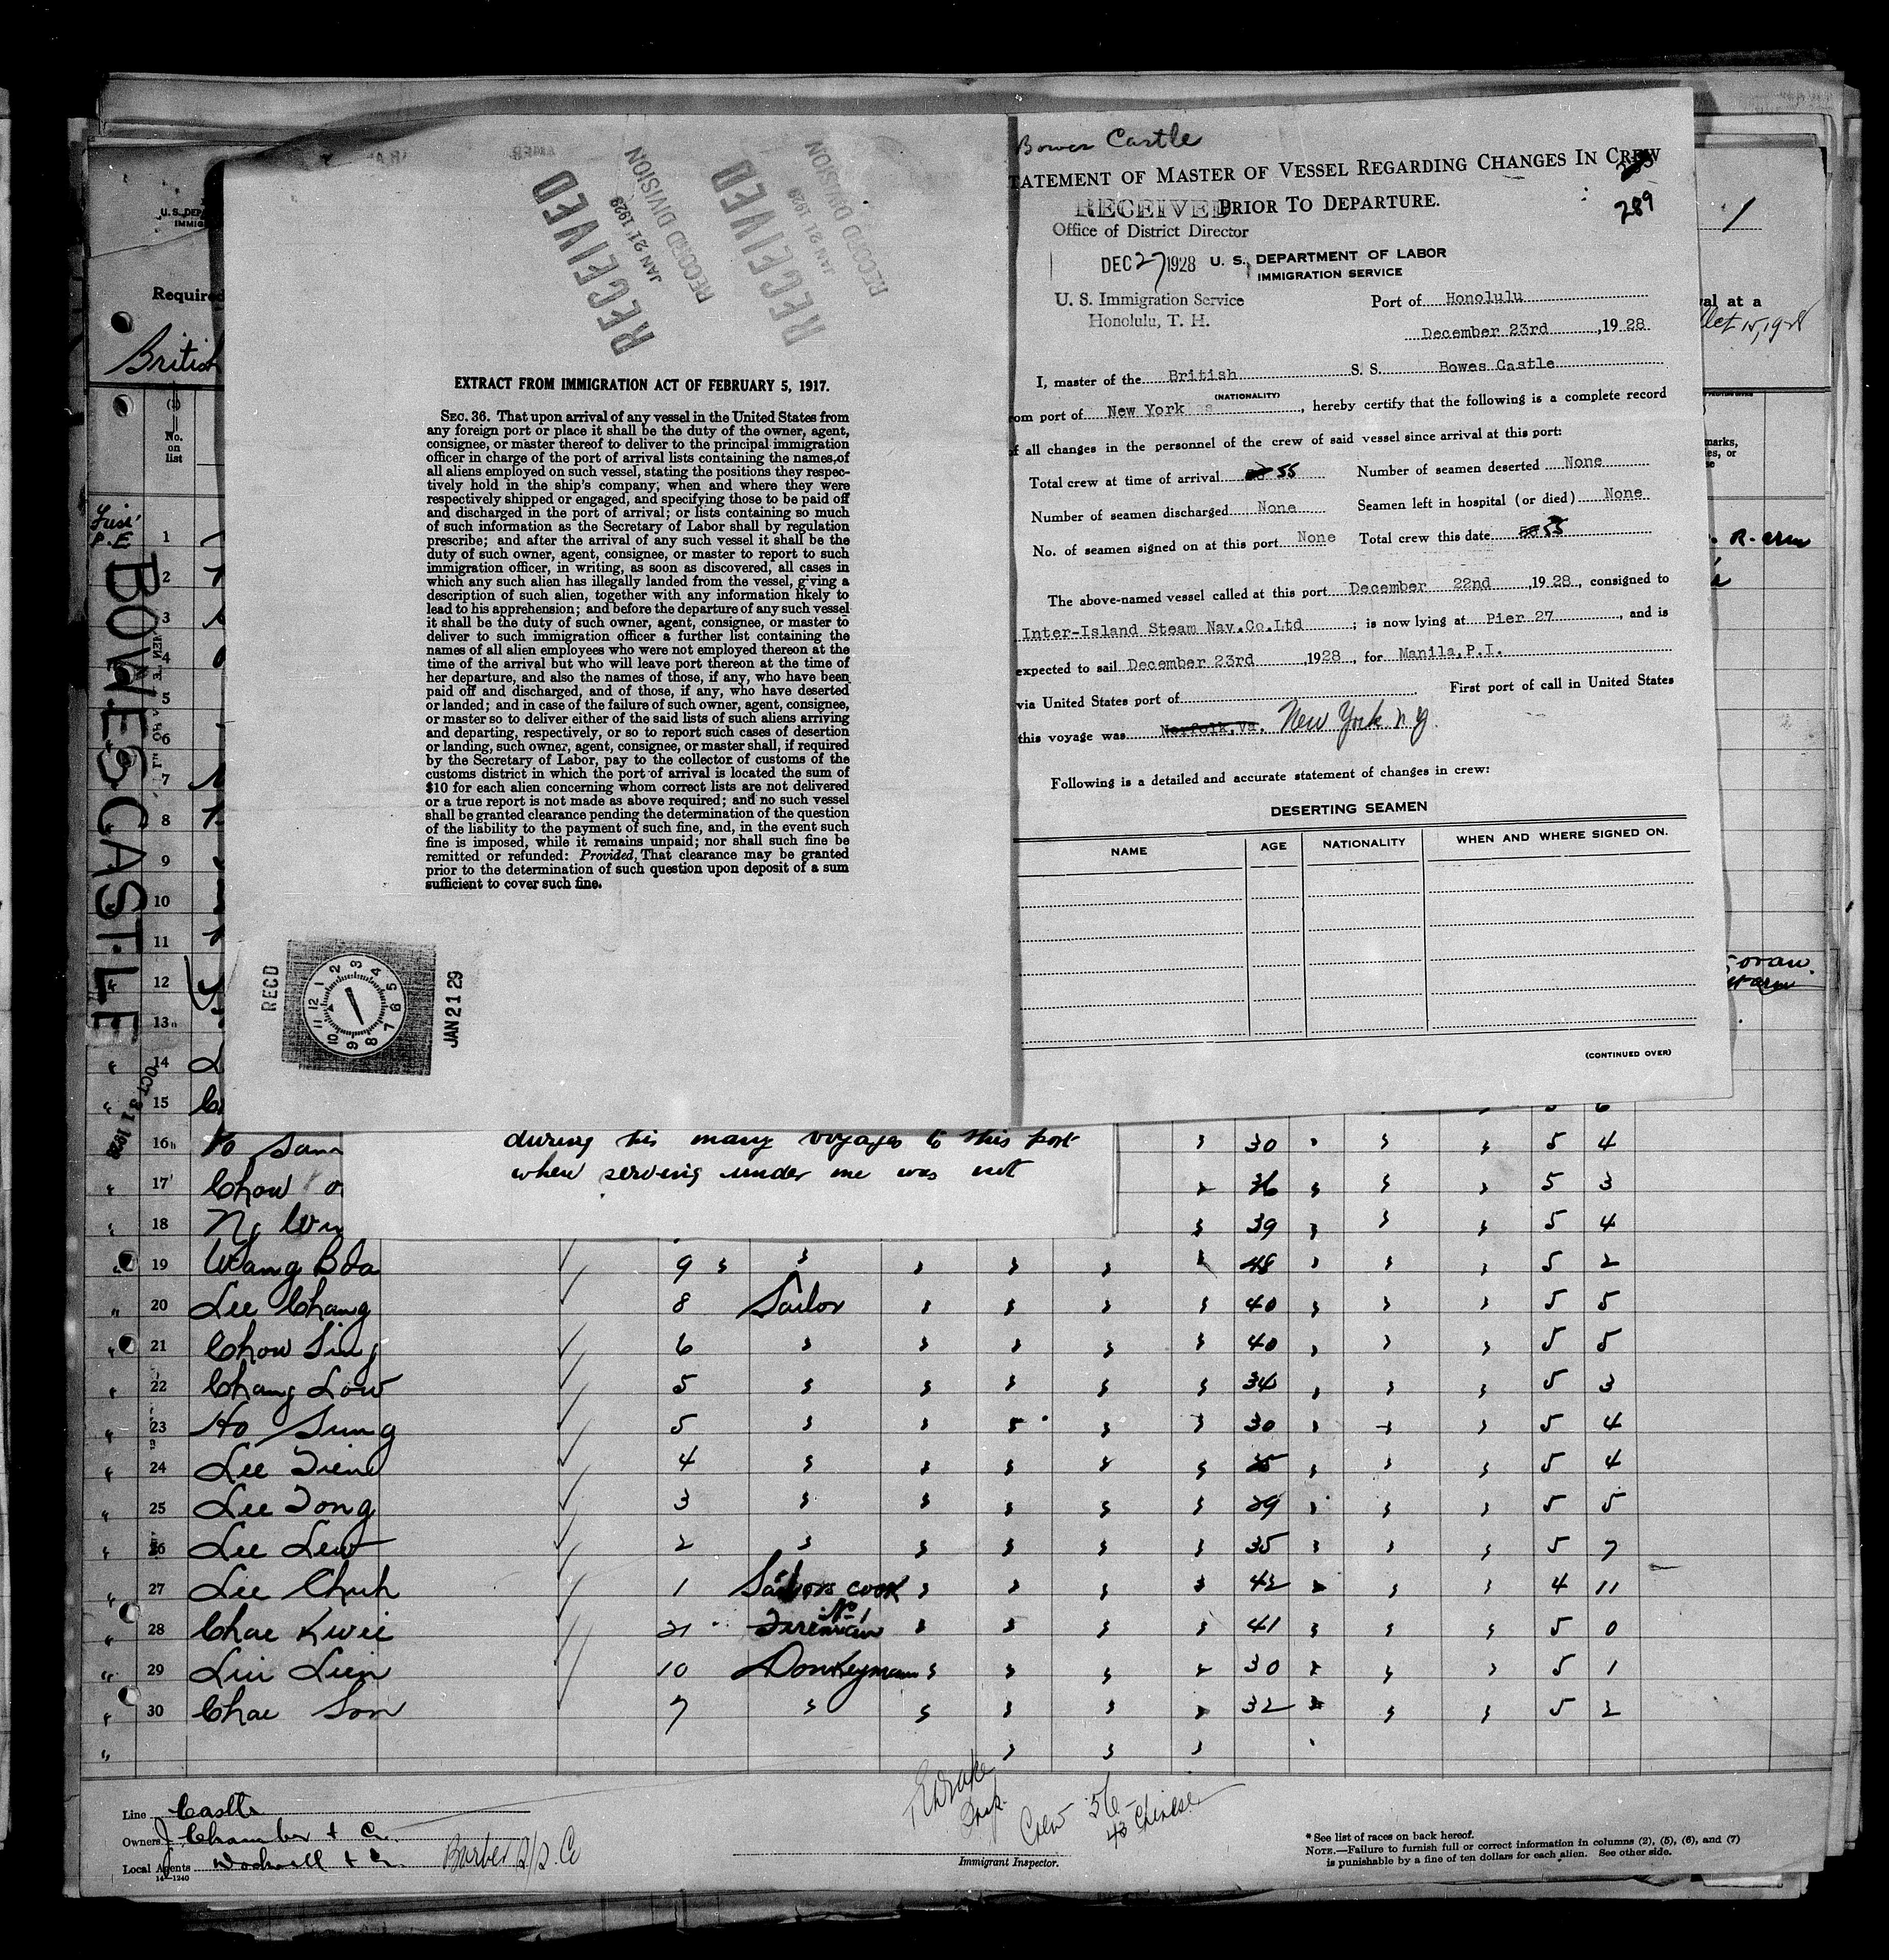 Bowes Castle
STATEMENT OF MASTER OF VESSEL REGARDING CHANGES IN CREW
PRIOR TO DEPARTURE.
289
RECEIVED
Office of District Director
DEC 27 1928
U. S. Immigration Service
Honolulu, T. H.
U. S. DEPARTMENT OF LABOR
IMMIGRATION SERVICE
Port of Honolulu
December 23rd, 1928
I, master of the British S. S. Bowes Castle
(NATIONALITY)
from port of New York, hereby certify that the following is a complete record
of all changes in the personnel of the crew of said vessel since arrival at this port:
Total crew at time of arrival 55 Number of seamen deserted None
Number of seamen discharged None Seamen left in hospital (or died) None
No. of seamen signed on at this port None Total crew this date 55
The above-named vessel called at this port December 22nd, 1928, consigned to
Inter-Island Steam Nav.Co.Ltd; is now lying at Pier 27, and is
expected to sail December 23rd, 1928, for Manila,P.I.
via United States port of First port of call in United States
this voyage was Norfolk,Va. New York N.Y.
Following is a detailed and accurate statement of changes in crew:
DESERTING SEAMEN
NAME AGE NATIONALITY WHEN AND WHERE SIGNED ON.
(CONTINUED OVER)
RECEIVED
JAN 21 1929
RECORD DIVISION
RECEIVED
JAN 21 1929
RECORD DIVISION
EXTRACT FROM IMMIGRATION ACT OF FEBRUARY 5, 1917.
SEC. 36. That upon arrival of any vessel in the United States from
any foreign port or place it shall be the duty of the owner, agent,
consignee, or master thereof to deliver to the principal immigration
officer in charge of the port of arrival lists containing the names of
all aliens employed on such vessel, stating the positions they respec-
tively hold in the ship's company, when and where they were
respectively shipped or engaged, and specifying those to be paid off
and discharged in the port of arrival; or lists containing so much
of such information as the Secretary of Labor shall by regulation
prescribe; and after the arrival of any such vessel it shall be the
duty of such owner, agent, consignee, or master to report to such
immigration officer, in writing, as soon as discovered, all cases in
which any such alien has illegally landed from the vessel, giving a
description of such alien, together with any information likely to
lead to his apprehension; and before the departure of any such vessel
it shall be the duty of such owner, agent, consignee, or master to
deliver to such immigration officer a further list containing the
names of all alien employees who were not employed thereon at the
time of the arrival but who will leave port thereon at the time of
her departure, and also the names of those, if any, who have been
paid off and discharged, and of those, if any, who have deserted
or landed; and in case of the failure of such owner, agent, consignee,
or master so to deliver either of the said lists of such aliens arriving
and departing, respectively, or so to report such cases of desertion
or landing, such owner, agent, consignee, or master shall, if required
by the Secretary of Labor, pay to the collector of customs of the
customs district in which the port of arrival is located the sum of
$10 for each alien concerning whom correct lists are not delivered
or a true report is not made as above required; and no such vessel
shall be granted clearance pending the determination of the question
of the liability to the payment of such fine, and, in the event such
fine is imposed, while it remains unpaid; nor shall such fine be
remitted or refunded: Provided, That clearance may be granted
prior to the determination of such question upon deposit of a sum
sufficient to cover such fine.
RECD
JAN 21 29
12 1 2 3 4 5 6 7 8 9 10 11
U. S. DEP
IMMIG
Required
British
val at a
Oct 15, 1928
1
No.
on
list
BOWES CASTLE
OCT 31 1928
1 R. arm
2
3
4
5
6
7
8
9
10
11
12
13
14
15
during his many voyages to this port
when serving under me was not
16 Ho 30 5 4
17 Chow 36 5 3
18 Ng 39 5 4
19 Wang Boa 9 48 5 2
20 Lee Chang 8 Sailor 40 5 5
21 Chow Sing 6 40 5 5
22 Chang Low 5 34 5 3
23 Ho Sung 5 30 5 4
24 Lee Tien 4 35 5 4
25 Lee Tong 3 29 5 5
26 Lee Lew 2 35 5 7
27 Lee Chuh 1 Sailors cook 42 4 11
28 Chae Kwei 21 No 1 Fireman 41 5 0
29 Lui Lien 10 Donkeyman 30 5 1
30 Chae Son 7 32 5 2
Line Castle
Owners J Chambers & Co.
Local Agents
Barber S/S. Co
14-1240
Crew 56
43 Chinese
Immigrant Inspector.
* See list of races on back hereof.
NOTE.—Failure to furnish full or correct information in columns (2), (5), (6), and (7)
is punishable by a fine of ten dollars for each alien. See other side.